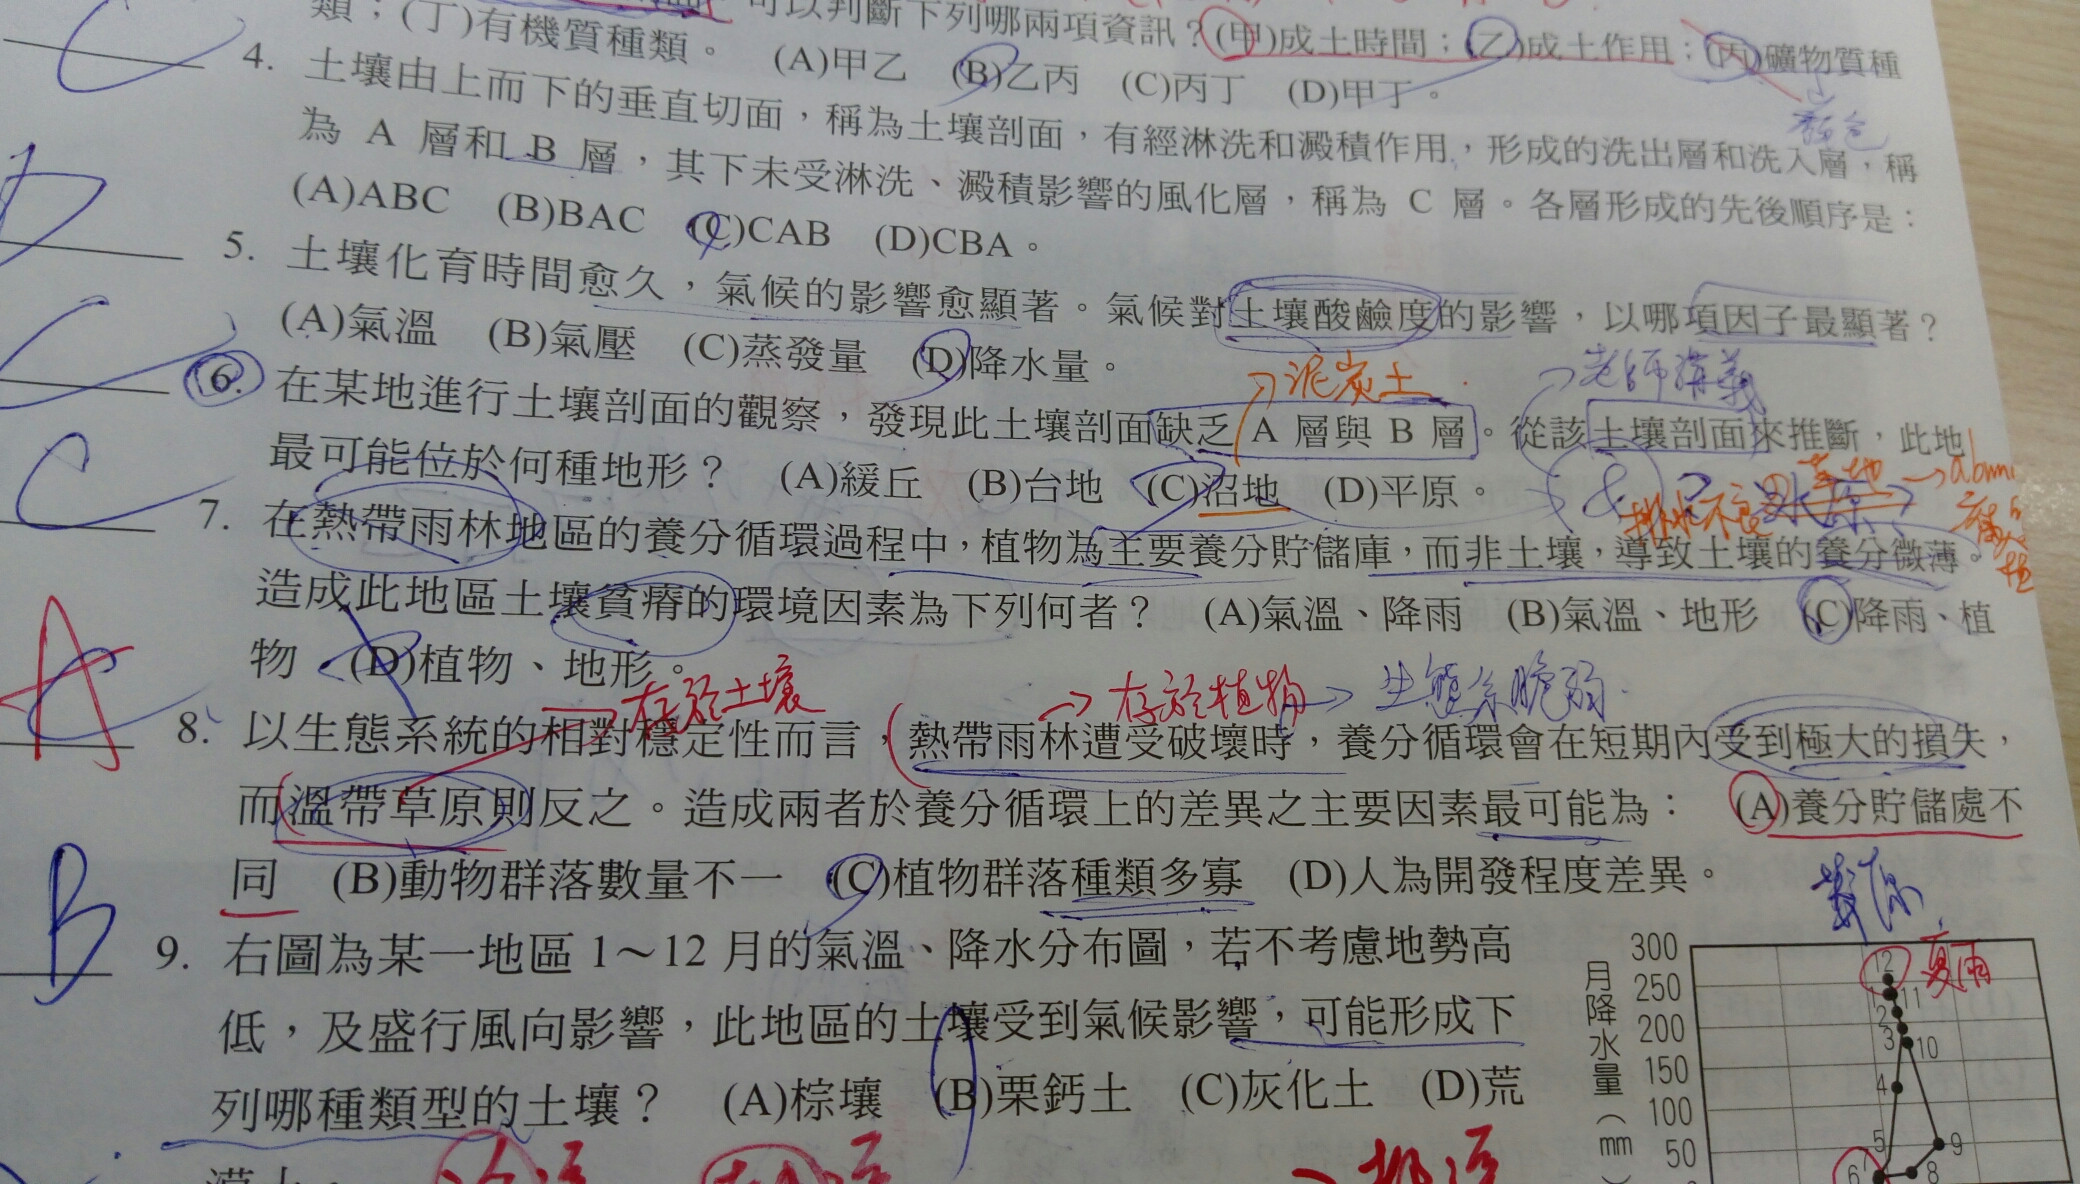 可以判斷下列哪兩項資訊？(甲)成土時間；(乙)成土作用；(丙)礦物質種
類；(丁)有機質種類。 (A)甲乙 (B)乙丙 (C)丙丁 (D)甲丁。
顏色
C
4. 土壤由上而下的垂直切面，稱為土壤剖面，有經淋洗和澱積作用，形成的洗出層和洗入層，稱
為 A 層和 B 層，其下未受淋洗、澱積影響的風化層，稱為 C 層。各層形成的先後順序是：
(A)ABC (B)BAC (C)CAB (D)CBA。
D
5. 土壤化育時間愈久，氣候的影響愈顯著。氣候對土壤酸鹼度的影響，以哪項因子最顯著？
(A)氣溫 (B)氣壓 (C)蒸發量 (D)降水量。
→泥炭土
→老師講義
C
6. 在某地進行土壤剖面的觀察，發現此土壤剖面缺乏 A 層與 B 層。從該土壤剖面來推斷，此地
最可能位於何種地形？ (A)緩丘 (B)台地 (C)沼地 (D)平原。
排水不良
C
7. 在熱帶雨林地區的養分循環過程中，植物為主要養分貯儲庫，而非土壤，導致土壤的養分微薄。
造成此地區土壤貧瘠的環境因素為下列何者？ (A)氣溫、降雨 (B)氣溫、地形 (C)降雨、植
物 (D)植物、地形。
→存於土壤
→存於植物→生態系脆弱
A
C
8. 以生態系統的相對穩定性而言，熱帶雨林遭受破壞時，養分循環會在短期內受到極大的損失，
而溫帶草原則反之。造成兩者於養分循環上的差異之主要因素最可能為： (A)養分貯儲處不
同 (B)動物群落數量不一 (C)植物群落種類多寡 (D)人為開發程度差異。
B
9. 右圖為某一地區 1～12 月的氣溫、降水分布圖，若不考慮地勢高
低，及盛行風向影響，此地區的土壤受到氣候影響，可能形成下
列哪種類型的土壤？ (A)棕壤 (B)栗鈣土 (C)灰化土 (D)荒
漠土。
夏雨
月降水量（mm）
300
250
200
150
100
50
12
11
2
3
10
4
5
9
6
8